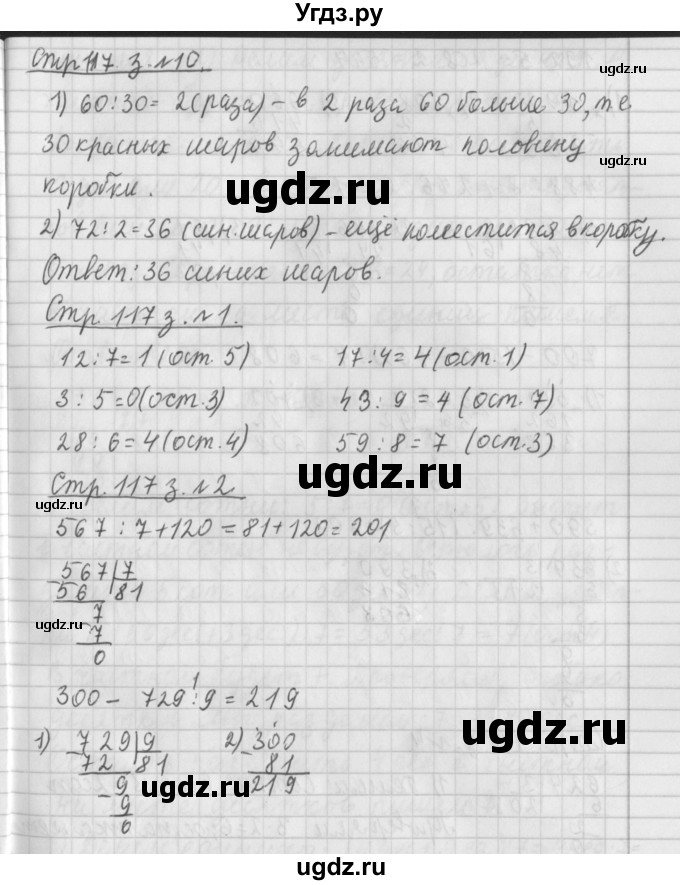 Угдз.ру
Стр 117. з. №10.
1) 60:30= 2(раза) – в 2 раза 60 больше 30, т.е
30 красных шаров занимают половину
коробки.
ugdz.ru
ugdz.ru
2) 72:2=36 (син.шаров) – ещё поместится в коробку.
Ответ: 36 синих шаров.
Стр. 117 з. №1.
12:7=1 (ост. 5) 17:4=4(ост.1)
3:5=0(ост.3) 43:9=4 (ост.7)
28:6=4(ост.4) 59:8=7 (ост.3)
ugdz.ru
ugdz.ru
Стр. 117 з. №2
ugdz.ru
567:7+120=81+120=201
567 7
56 81
7
7
0
ugdz.ru
300 – 729:9=219
1
1) 729 9 2) 300
72 81 81
9 219
9
0
ugdz.ru
ugdz.ru
ugdz.ru
ugdz.ru